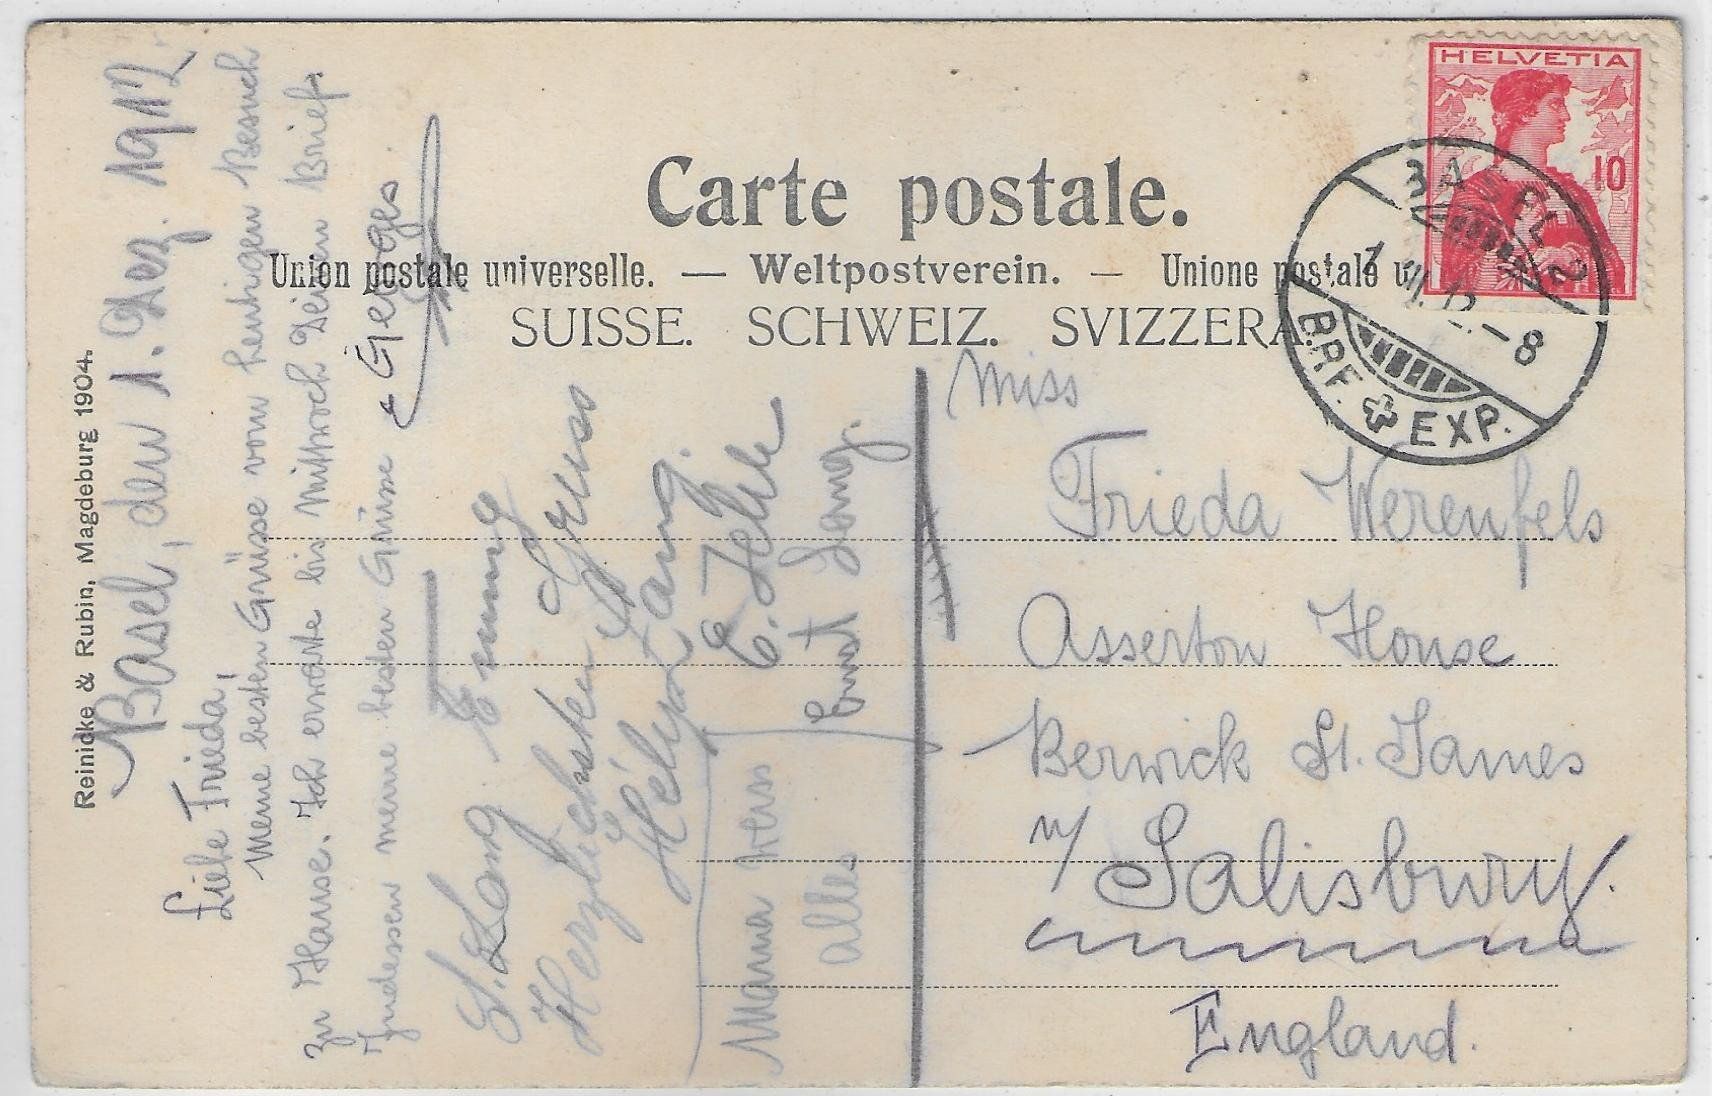 Carte postale.
Union postale universelle. — Weltpostverein. — Unione postale
SUISSE. SCHWEIZ. SVIZZERA.
HELVETIA
10
BASEL 2
1. XII. 12. – 8
BRF. EXP.
Reinicke & Rubin, Magdeburg 1904.
Basel, den 1. Dez. 1912.
Liebe Frieda,
Meine besten Grüsse vom heutigen Besuch
zu Hause. Ich erwarte bis Mittwoch Deinen Brief.
Indessen meine besten Grüsse Georges.
S. Lang Emmy
Herzlichsten Gruss
Hély Lang.
E.
Ernst Lang.
Mama
alles
Miss
Frieda Werenfels
Asserton House
Berwick St. James
n/ Salisbury.
England.